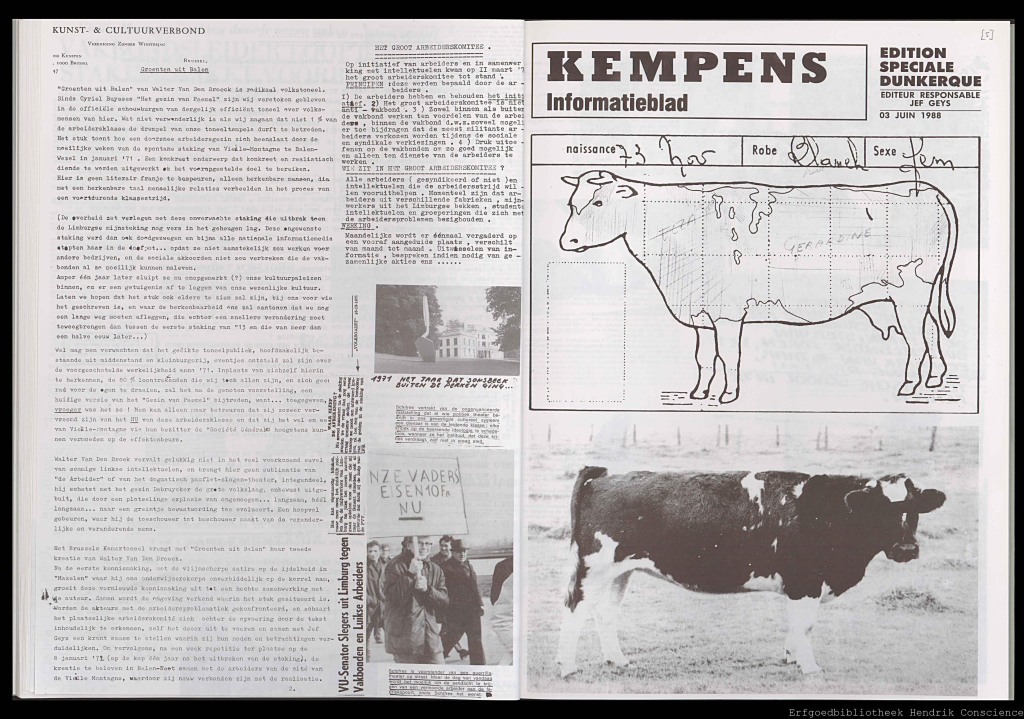 KUNST- & CULTUURVERBOND
VERENIGING ZONDER WINSTOOGMERK
BRUSSEL,
Groenten uit Balen
"Groenten uit Balen" van Walter Van Den Broeck is radikaal volkstoneel.
Sinds Cyriel Buysses "Het gezin van Paemel" zijn wij verstoken gebleven
in de officiële schouwburgen van dergelijk efficiënt toneel over volks-
mensen van hier. Wat niet verwonderlijk is als wij nagaan dat niet 1 % van
de arbeidersklasse de drempel van onze toneeltempels durft te betreden.
Het stuk toont hoe een doorsnee arbeidersgezin zich heenslaat door de
moeilijke weken van de spontane staking van Vieille-Montagne te Balen-
Wezel in januari '71. Een konkreet onderwerp dat konkreet en realistisch
diende te worden uitgewerkt om het vooropgestelde doel te bereiken.
Hier is geen literair franje te bespeuren, alleen herkenbare mensen, die
met een herkenbare taal menselijke relaties verbeelden in het proces van
een voortdurende klassestrijd.
(De overheid zat verlegen met deze onverwachte staking die uitbrak toen
de Limburgse mijnstaking nog vers in het geheugen lag. Deze ongewenste
staking werd dan ook doodgezwegen en bijna alle nationale informatiemedia
stopten haar in de doofpot... opdat ze niet aanstekelijk zou werken voor
andere bedrijven, en de sociale akkoorden niet zou verbreken die de vak-
bonden al zo moeilijk kunnen naleven.
Amper één jaar later sluipt ze nu onopgemerkt (?) onze cultuurpaleizen
binnen, en er een getuigenis af te leggen van onze wezenlijke kultuur.
Laten we hopen dat het stuk ook elders te zien zal zijn, bij ons voor wie
het geschreven is, en waar de herkenbaarheid ons zal aantonen dat we nog
een lange weg moeten afleggen, die echter een snellere verandering moet
teweegbrengen dan tussen de eerste staking van '13 en die van meer dan
een halve eeuw later...)
Wel mag men verwachten dat het gedikte toneelpubliek, hoofdzakelijk be-
staande uit middenstand en kleinburgerij, eventjes ontsteld zal zijn over
de voorgeschotelde werkelijkheid anno '71. Inplaats van zichzelf hierin
te herkennen, de 80 % loontrekkenden die wij toch allen zijn, en zich geen
rad voor de ogen te draaien, zal het na de genoten voorstelling, een
huidige versie van het "Gezin van Paemel" bijtreden, want... toegegeven,
vroeger was het zo ! Men kan alleen maar betreuren dat zij zozeer ver-
vreemd zijn van het NU van deze arbeidersklasse en dat zij het wel en wee
van Vieille-Montagne via hun bezitter de "Société Générale" hoogstens kun-
nen vermoeden op de effektenbeurs.
Walter Van Den Broek vervalt gelukkig niet in het veel voorkomend euvel
van sommige linkse intellektuelen, en brengt hier geen sublimatie van
"de Arbeider" of van het dogmatisch pamflet-slogan-theater, integendeel,
hij schetst met het gezin Debruycker de grote volksklang, onbewust uitge-
buit, die door een plotselinge explosie van ongenoegen... langzaam, héél
langzaam... naar een greintje bewustwording toe evolueert. Een hoopvol
gebeuren, waar hij de toeschouwer tot beschouwer maakt van de verander-
lijke en veranderende mens.
Het Brussels Kamertoneel brengt met "Groenten uit Balen" haar tweede
kreatie van Walter Van Den Broeck.
Na de eerste kennismaking, met de vlijmscherpe satire op de ijdelheid in
"Mazelen" waar hij ons onderwijzerskorps onverbiddelijk op de korrel nam,
groeit deze vernieuwde kennismaking uit tot een hechte samenwerking met
de auteur. Samen wordt de omgeving verkend waarin het stuk gesitueerd is.
Worden de akteurs met de arbeidersproblematiek gekonfronteerd, en schaart
het plaatselijke arbeiderskomité zich achter de opvoering door de tekst
inhoudelijk te erkennen, zelf het decor uit te voeren en samen met Jef
Geys een krant samen te stellen waarin zij hun noden en betrachtingen ver-
duidelijken. Om vervolgens, na een week repetitie ter plaatse op de
8 januari '72 (op de kop één jaar na het uitbreken van de staking), de
kreatie te beleven in Balen-Neet samen met de arbeiders van de cité van
de Vieille Montagne, waardoor zij nauw verbonden zijn met de realisatie.
2.
HET GROOT ARBEIDERSKOMITEE .
Op initiatief van arbeiders en in samenwer
king met intellektuelen kwam op II maart '7
het groot arbeiderskomitee tot stand .
PRINCIPEN :deze werden bepaald door de ar-
beiders .
1) De arbeiders hebben en behouden het init
atief. 2) Het groot arbeiderskomitee is niet
anti - vakbond . 3 ) Zowel binnen als buiten
de vakbond werken ten voordelen van de arbei
ders , binnen de vakbond d.w.z.zoveel mogeli
er toe bijdragen dat de meest militante ar-
beiders verkozen worden tijdens de sociale
en syndikale verkiezingen . 4 ) Druk uitoe-
fenen op de vakbonden om zo goed mogelijk
en alleen ten dienste van de arbeiders te
werken .
WIE ZIT IN HET GROOT ARBEIDERSKOMITEE ?
Alle arbeiders ( gesyndikeerd of niet )en
intellektuelen die de arbeidersstrijd wil-
len vooruithelpen . Momenteel zijn dat ar-
beiders uit verschillende fabrieken , mijn-
werkers uit het Limburgse bekken , studente
intellektuelen en groeperingen die zich met
de arbeidersproblemen bezighouden .
WERKING .
Maandelijks wordt er éénmaal vergaderd op
een vooraf aangeduide plaats , verschilt
van maand tot maand . Uitwisselen van in-
formatie , bespreken indien nodig van ge-
zamenlijke akties enz ......
1971 HET JAAR DAT SONSBEEK
BUITEN DE PERKEN GING...
NZE VADERS
EISEN 10 Fr
NU
VU-Senator Slegers uit Limburg tegen
Vakbonden en Luikse Arbeiders
[5]
KEMPENS
Informatieblad
EDITION
SPECIALE
DUNKERQUE
EDITEUR RESPONSABLE
JEF GEYS
03 JUIN 1988
naissance 73 Nov
Robe Blanch
Sexe fem
VERPAZING
Erfgoedbibliotheek Hendrik Conscience